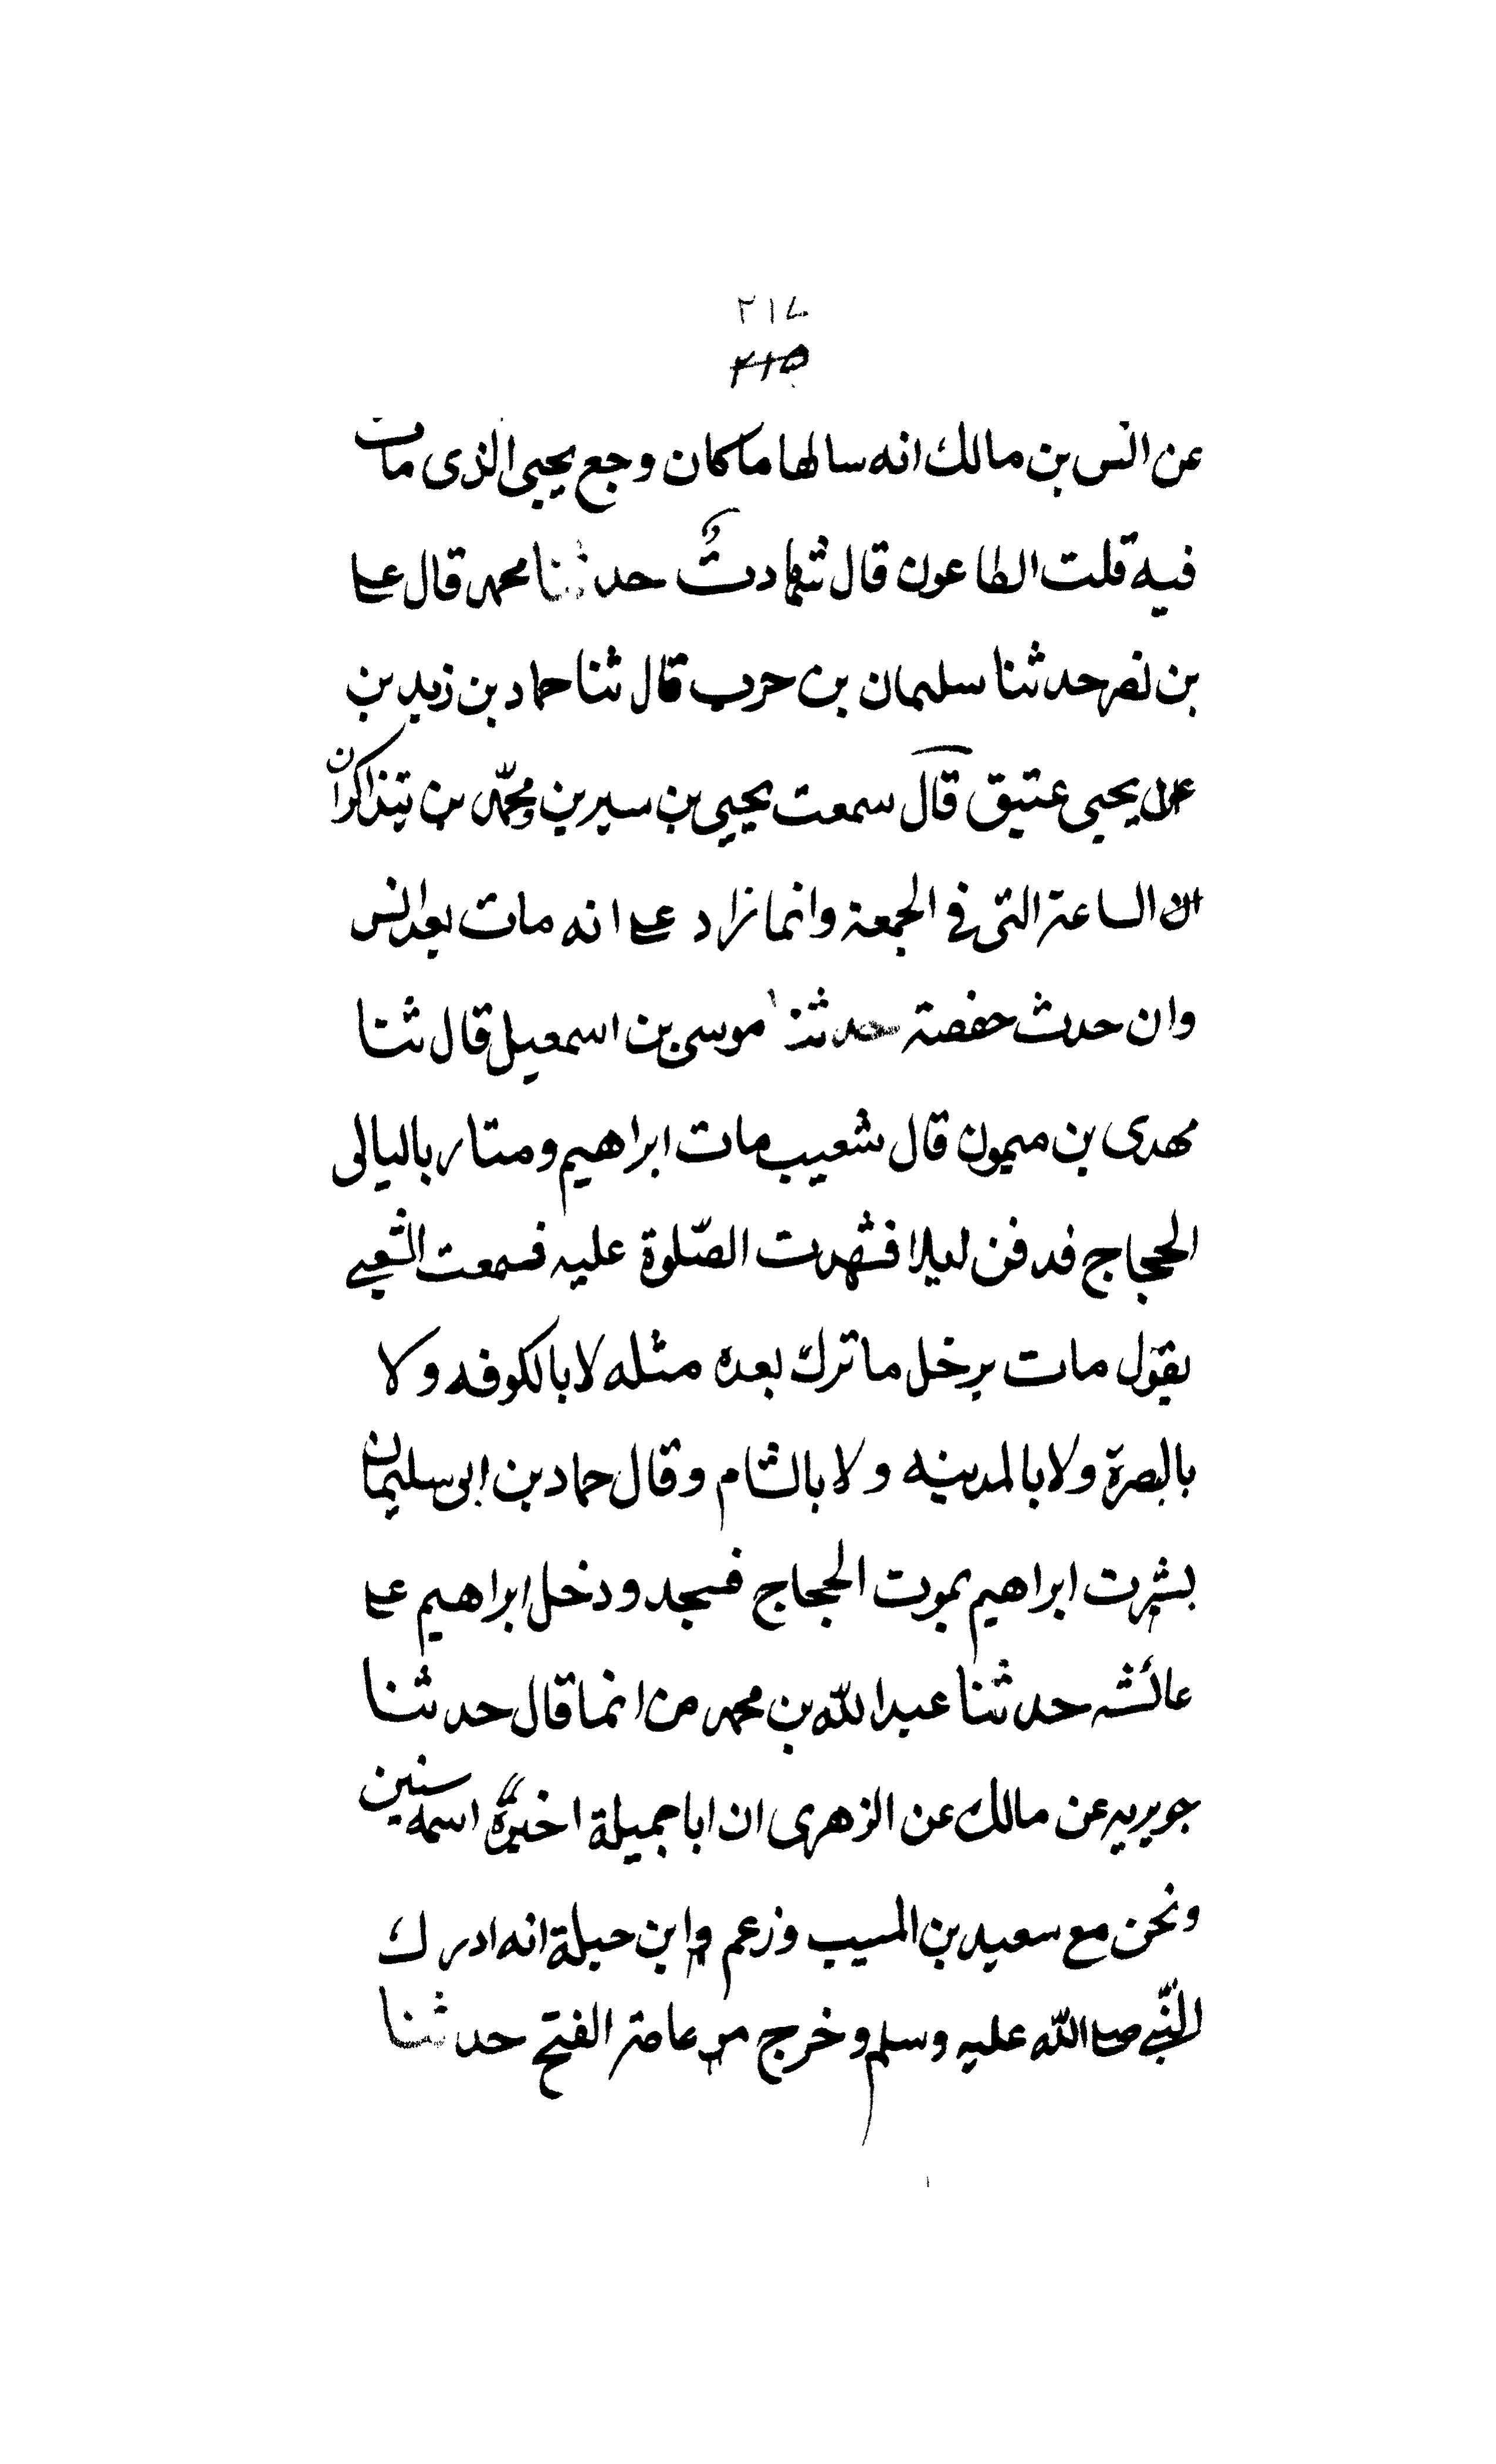 ٢١٧
٢١٥
عن انس بن مالك انه سالها ماكان وجع يحيى الذى مات
فيه قلت الطاعون قال شهادت حدثنا محمد قال على
بن نصر حدثنا سليمان بن حرب قال ثنا حماد بن زيد بن
يحيى عتيق قال سمعت يحيى بن سيرين ومحمّد بن يتذاكران
الساعة التى فى الجمعة وانما نراد على انه مات بعد انس
وان حدث حفصة حدثنا موسى بن اسمعيل قال ثنا
مهدى بن ميمون قال شعيب مات ابراهيم ومتارباليالى
الحجاج فدفن ليلا فشهدت الصّلوة عليه فسمعت الشعبى
يقول مات برخل ماترك بعده مثله لا بالكوفه ولا
بالبصرة ولا بالمدينه ولا بالشام وقال حماد بن ابى سليمان
بشرت ابراهيم بموت الحجاج فسجد ودخل ابراهيم على
عائشه حدثنا عبد الله بن محمد من انما قال حدثنا
جويريه عن مالك عن الزهرى ان ابا جميلة اخبره اسمه سنين
ونحن مع سعيد بن المسيب وزعم وابن حبلة انه ادرك
النّبى صلى الله عليه وسلم وخرج من عامة الفتح حدثنا